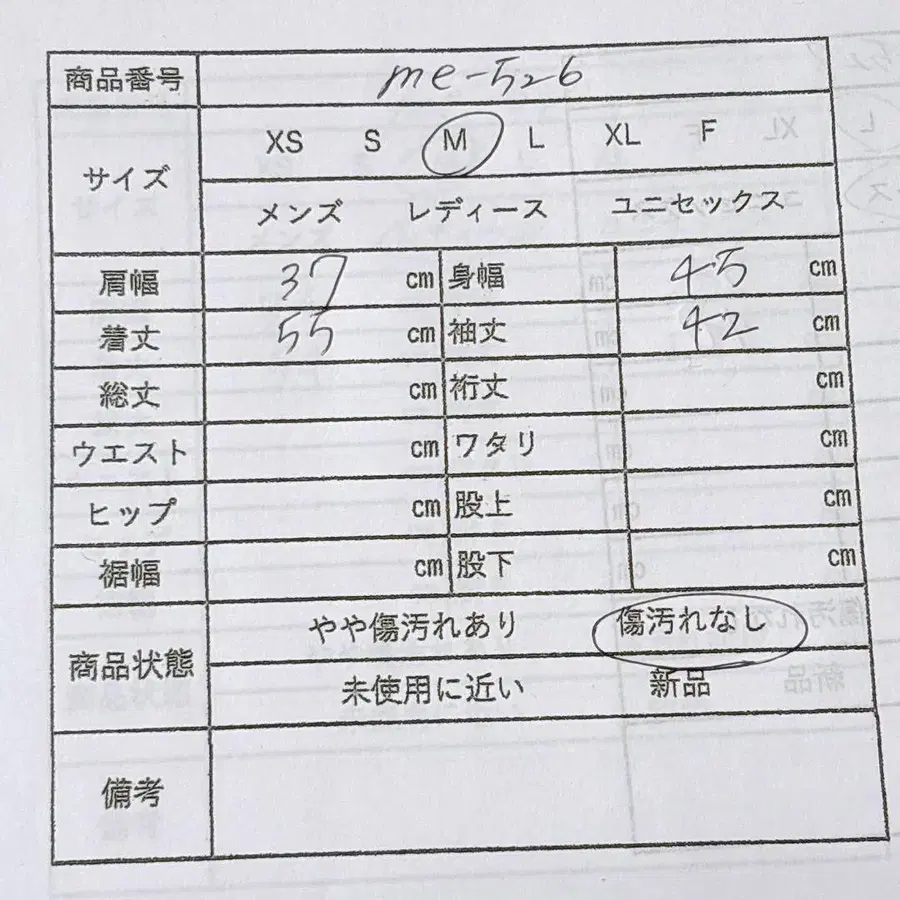 商品番号 me-526
サイズ XS S M L XL F
メンズ レディース ユニセックス
肩幅 37 cm 身幅 45 cm
着丈 55 cm 袖丈 42 cm
総丈 cm 裄丈 cm
ウエスト cm ワタリ cm
ヒップ cm 股上 cm
裾幅 cm 股下 cm
商品状態 やや傷汚れあり 傷汚れなし
未使用に近い 新品
備考